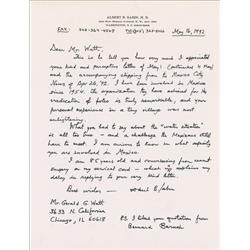 ALBERT B. SABIN, M. D.
WASHINGTON, D. C.
FAX: 202-363-4567 May 16, 1992
Dear Mr. Watt,
This is to tell you how very much I appreciated your
kind and perceptive letter of May 1 (continues 4 May)
and the accompanying clipping from the Mexico City
News of Apr. 26, '92. I have been involved in Mexico
since 1954. The organization they have achieved for the
eradication of polio is truly remarkable, and your
personal experience in a tiny village was most
enlightening.
What you had to say about the "water situation"
is all too true - and a challenge the Mexicans still
have to meet. I am anxious to know in what capacity
you are involved in Mexico.
I am 85 years old and recovering from recent
surgery on my cervical cord - which may explain my
delay in replying to your very kind letter.
Best wishes - Albert B. Sabin
Mr. Gerald G Watt
3633 N. California
Chicago, IL 60618
P.S. I liked your quotation from
Bernard Baruch